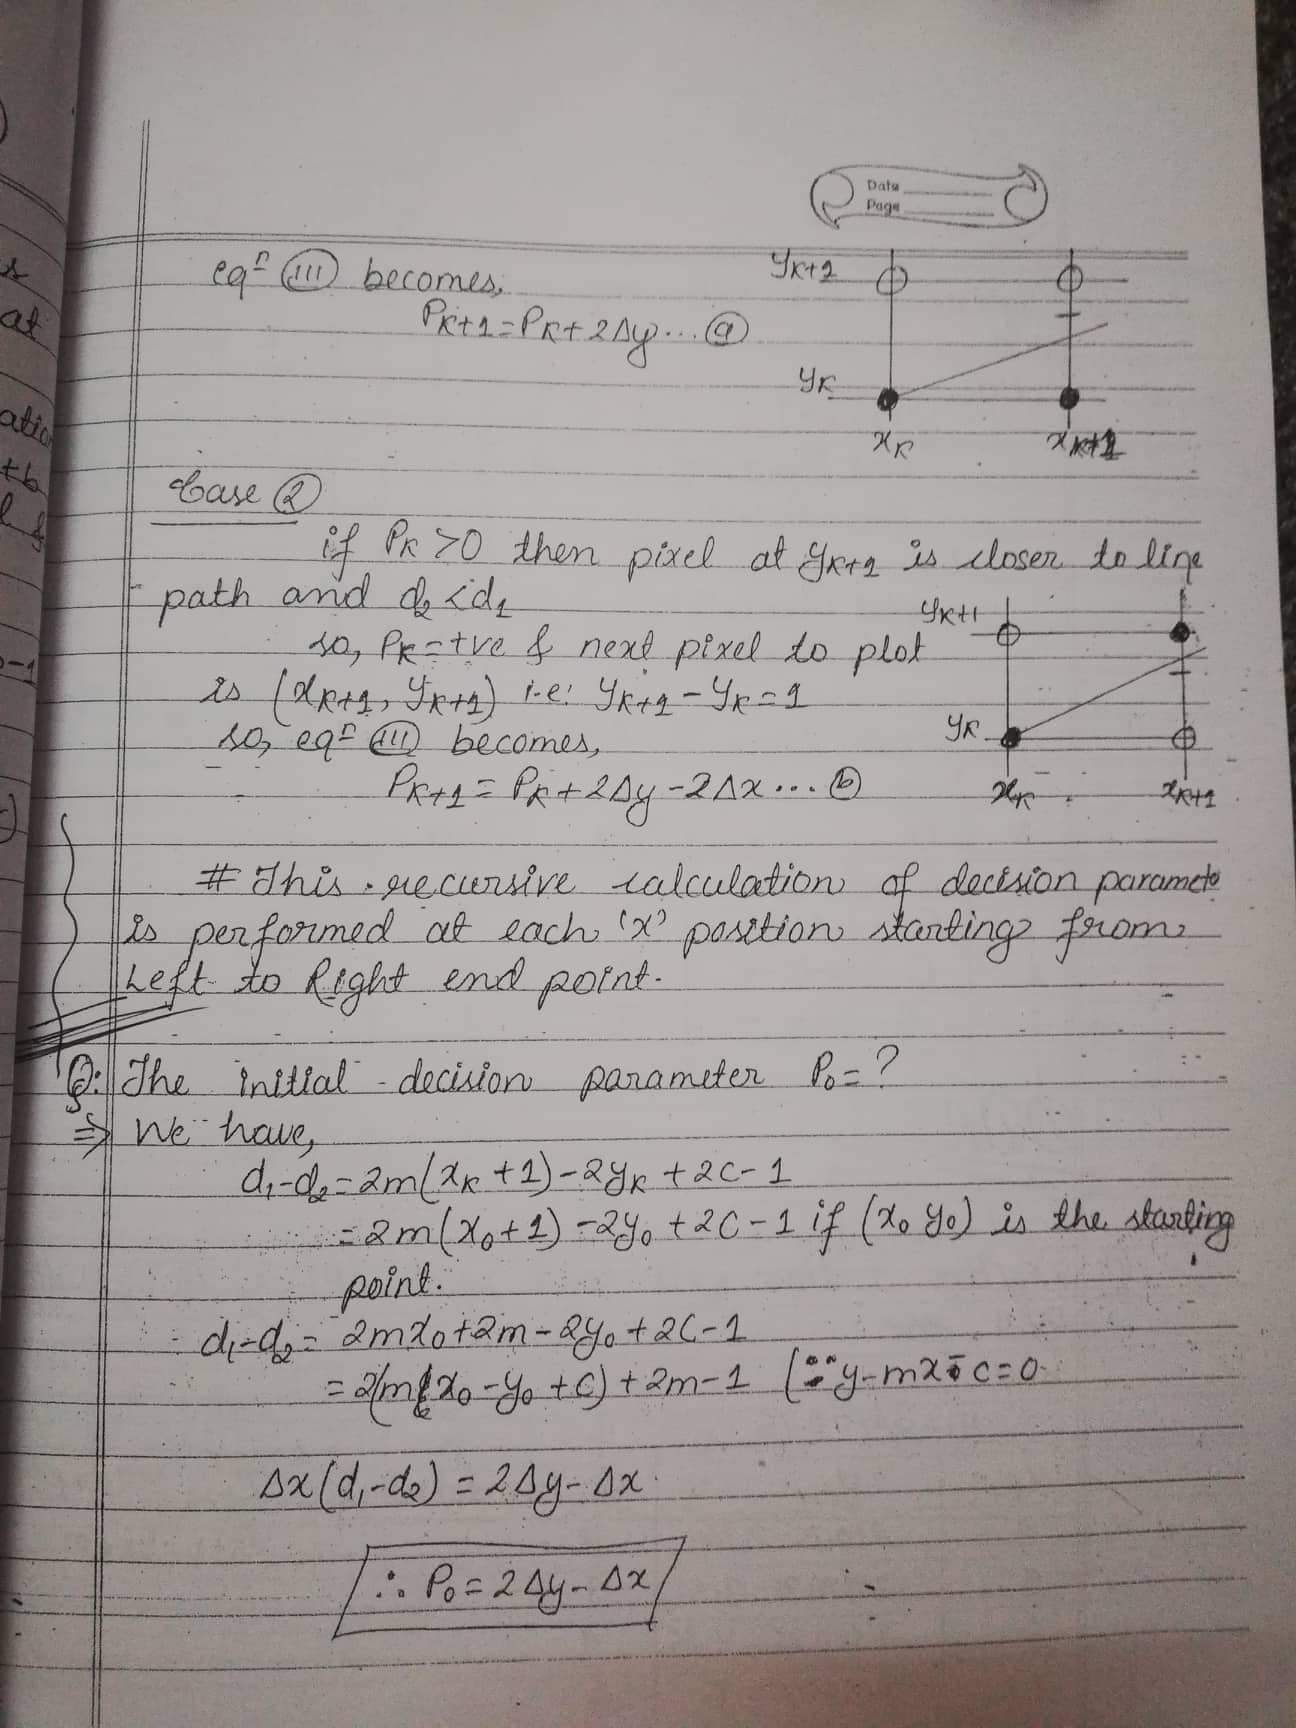 Date
Page
eqⁿ (III) becomes,
P_{K+1} = P_K + 2Δy ... (a)
y_{K+1}
y_K
x_K x_{K+1}
Case (2)
if P_K > 0 then pixel at y_{K+1} is closer to line
path and d₂ < d₁
so, P_K = +ve & next pixel to plot
is (x_{K+1}, y_{K+1}) i.e: y_{K+1} - y_K = 1
so, eqⁿ (III) becomes,
P_{K+1} = P_K + 2Δy - 2Δx ... (b)
y_{K+1}
y_K
x_K x_{K+1}
# This recursive calculation of decision paramete
is performed at each 'x' position starting from
Left to Right end point.
Q: The initial decision parameter P₀ = ?
⇒ We have,
d₁-d₂ = 2m(x_K + 1) - 2y_K + 2C - 1
= 2m(x₀+1) - 2y₀ + 2C - 1 if (x₀ y₀) is the starting
point.
d₁-d₂ = 2mx₀ + 2m - 2y₀ + 2C - 1
= 2(mx₀ - y₀ + C) + 2m - 1 (∵ y - mx - C = 0
Δx(d₁-d₂) = 2Δy - Δx
∴ P₀ = 2Δy - Δx